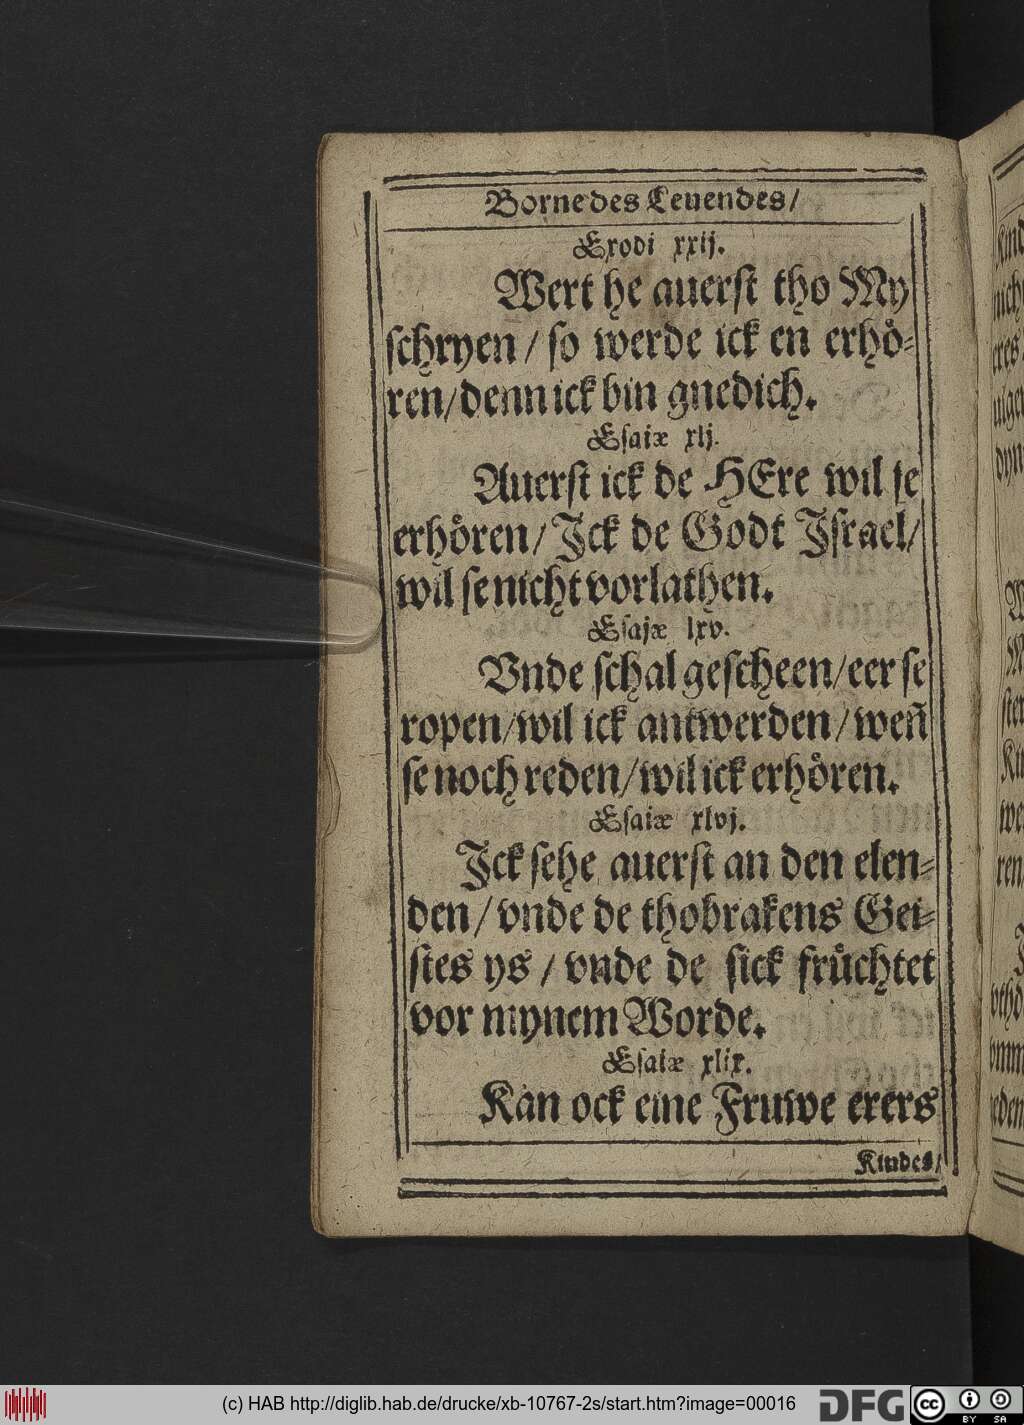 Borne des Leuendes/
Exodi xxij.
Wert he auerst tho My
schryen / so werde ick en erhoͤ-
ren/denn ick bin gnedich.
Esaiæ xlj.
Auerst ick de HEre wil se
erhoͤren/ Jck de Godt Jsrael/
wil se nicht vorlathen.
Esajæ lxv.
Vnde schal gescheen/eer se
ropen/wil ick antwerden/weñ
se noch reden/wil ick erhoͤren.
Esaiæ xlvj.
Jck sehe auerst an den elen-
den/ vnde de thobrakens Gei-
stes ys / vnde de sick fruͤchtet
vor mynem Worde.
Esaiæ xlix.
Kan ock eine Fruwe erers
Kindes/
(c) HAB http://diglib.hab.de/drucke/xb-10767-2s/start.htm?image=00016
DFG
cc BY SA